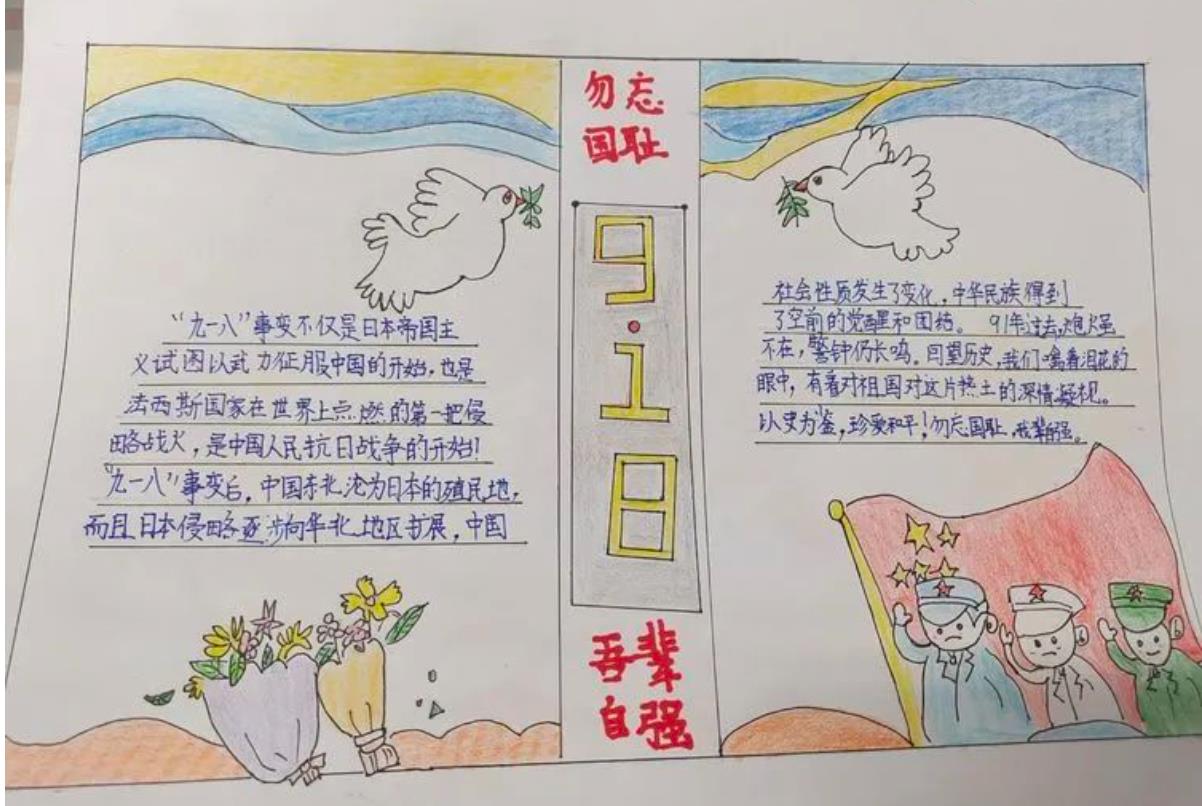 勿忘
国耻
9·18
吾辈
自强
“九一八”事变不仅是日本帝国主
义试图以武力征服中国的开始,也是
法西斯国家在世界上点燃的第一把侵
略战火,是中国人民抗日战争的开始!
“九一八”事变后,中国东北沦为日本的殖民地,
而且日本侵略逐步向华北地区扩展,中国
社会性质发生了变化,中华民族得到
了空前的觉醒和团结。 91年过去,炮火虽
不在,警钟仍长鸣。回望历史,我们噙着泪花的
眼中,有着对祖国对这片热土的深情凝视。
以史为鉴,珍爱和平!勿忘国耻,吾辈自强。